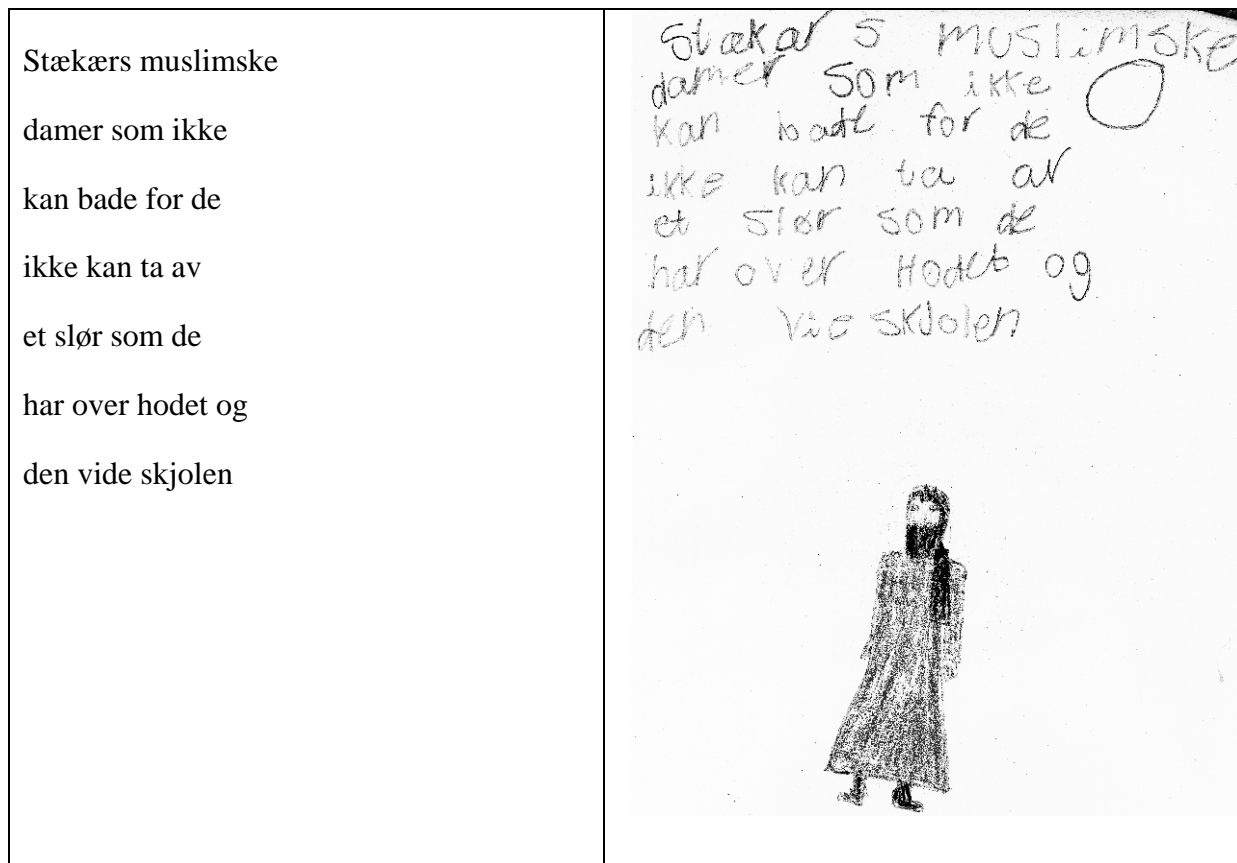 Stækærs muslimske
damer som ikke
kan bade for de
ikke kan ta av
et slør som de
har over hodet og
den vide skjolen
Stækar s muslimske
damer som ikke
kan bade for de
ikke kan ta av
et slør som de
har over Hodet og
den vie skjolen